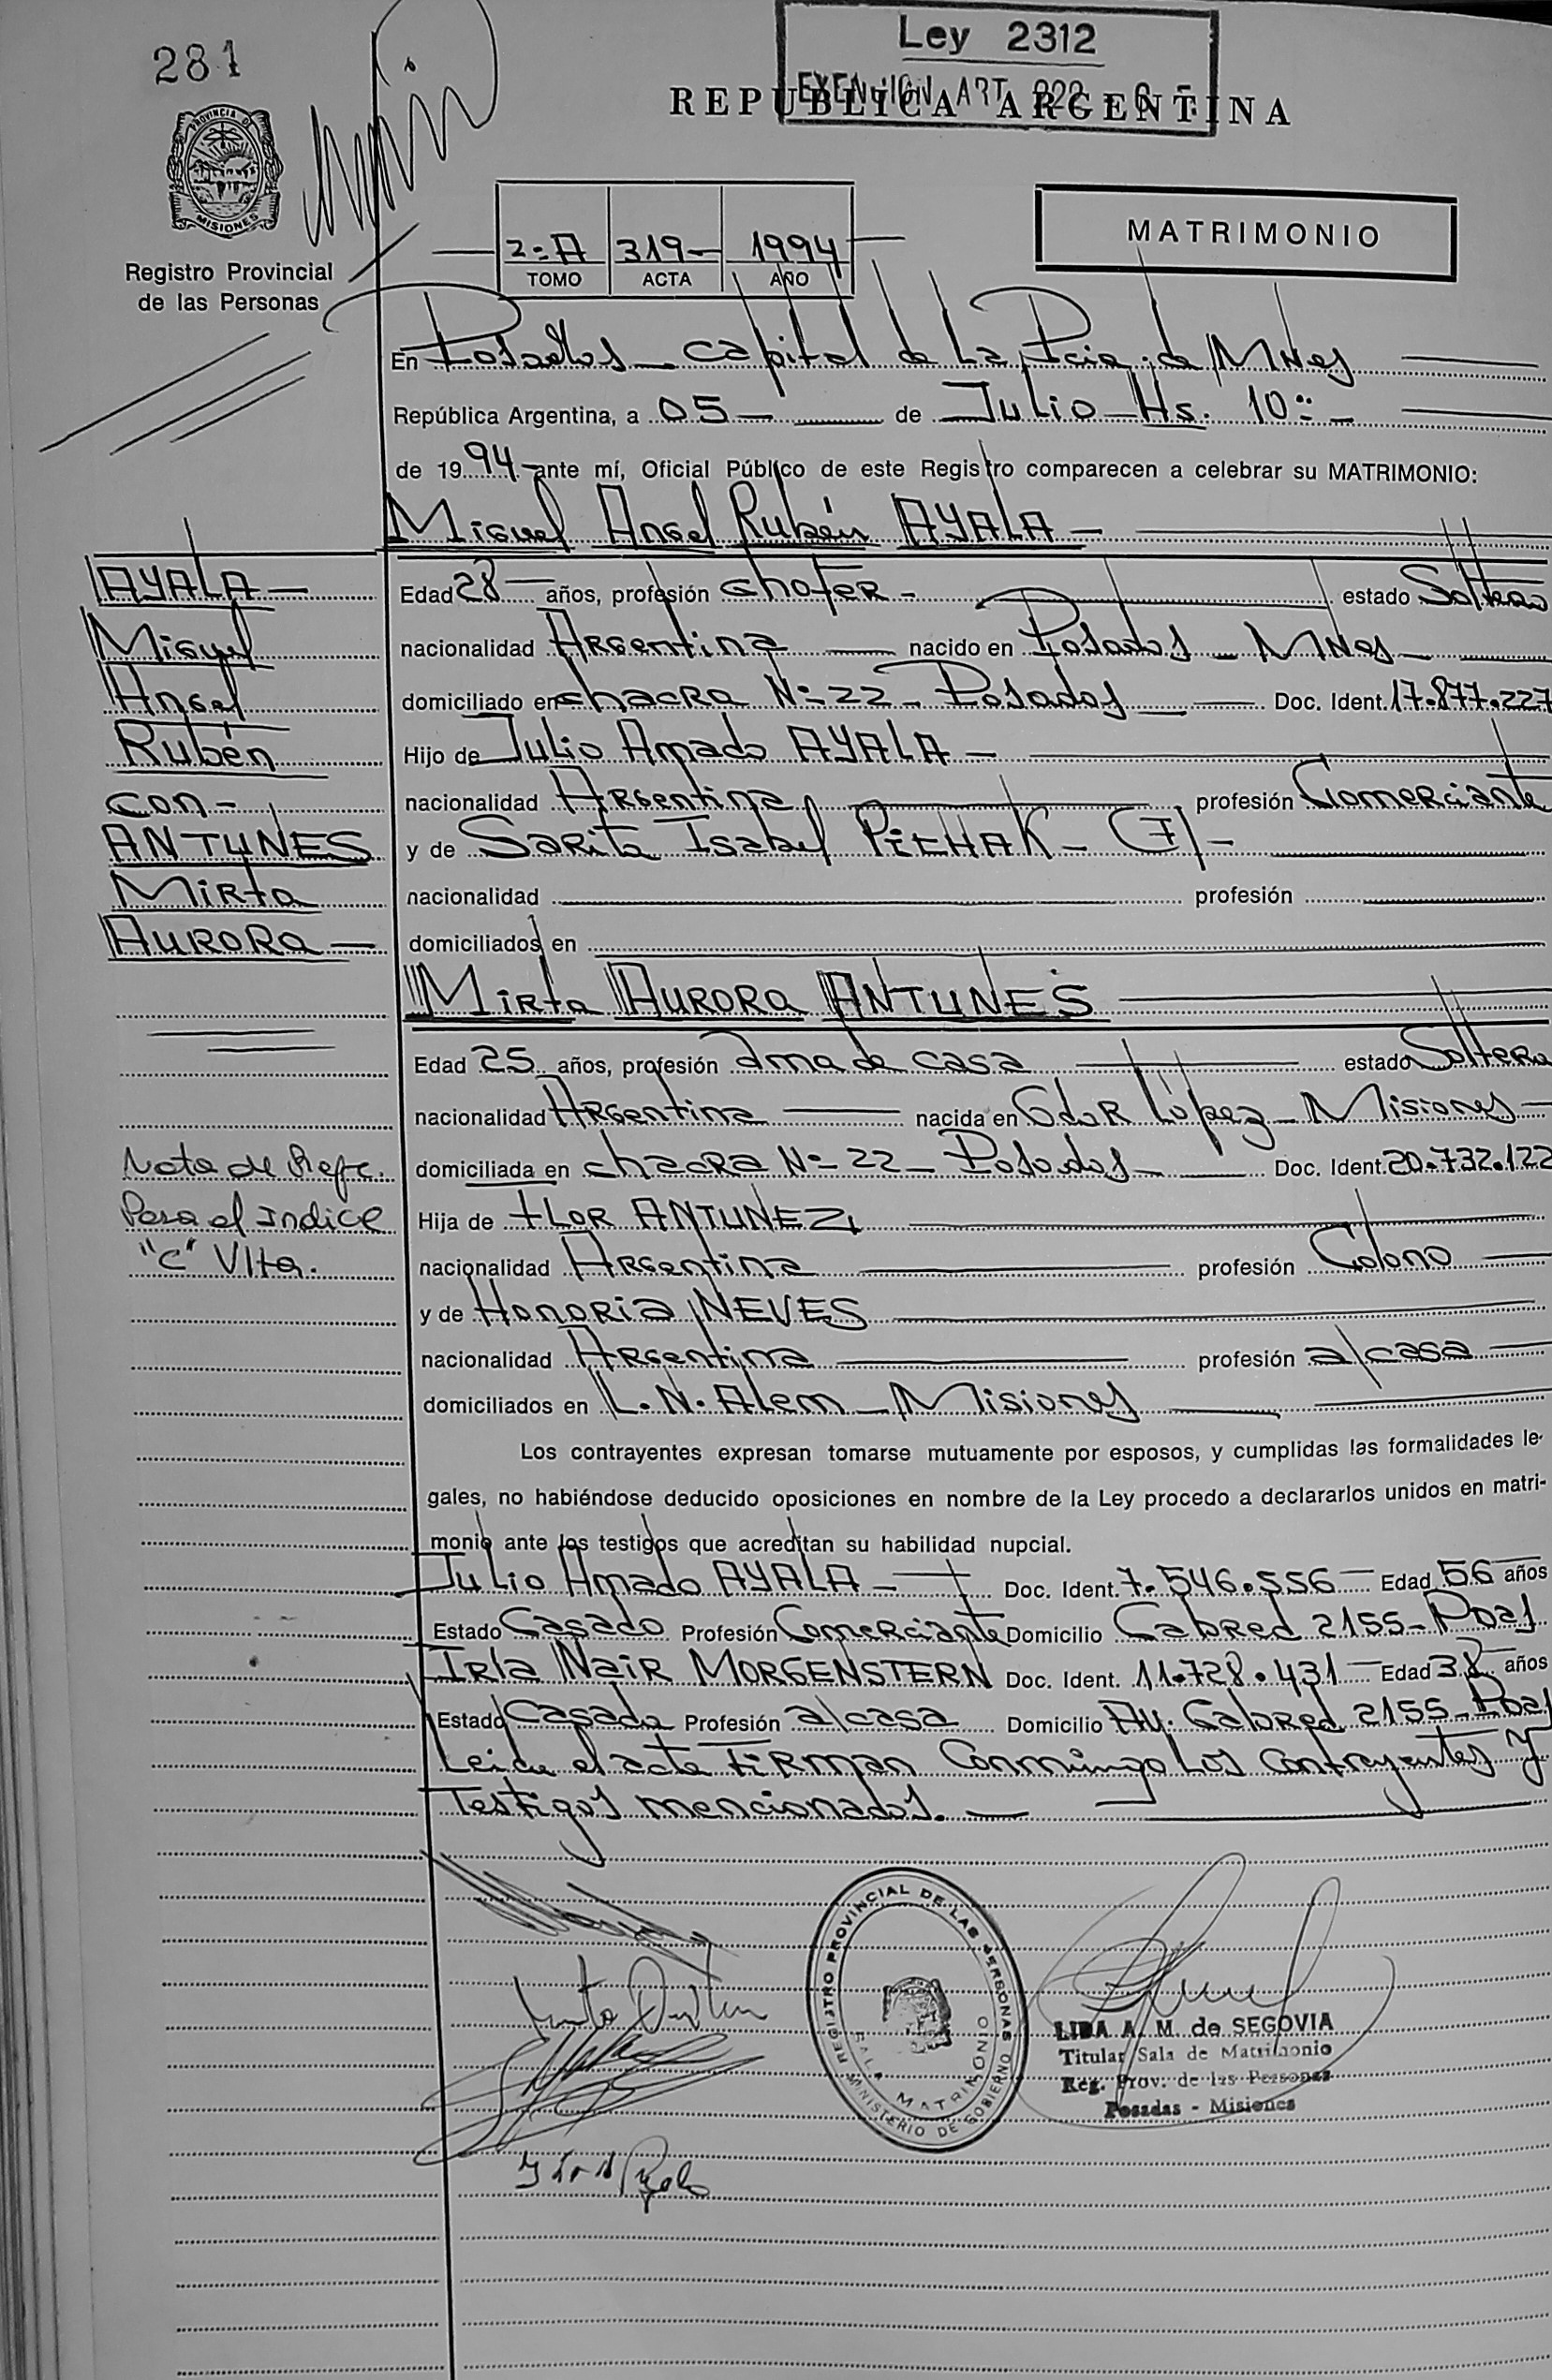 281
Ley 2312
REPUBLICA ARGENTINA
PROVINCIA DE
MISIONES
Registro Provincial
de las Personas
2=A 319- 1994
TOMO ACTA AÑO
MATRIMONIO
En Posadas - Capital de La Pcia. de MNes
República Argentina, a 05 - de Julio - Hs. 10:-
de 1994 - ante mí, Oficial Público de este Registro comparecen a celebrar su MATRIMONIO:
Miguel Angel Rubén AYALA -
AYALA -
Miguel
Angel
Rubén
con -
ANTUNES
Mirta
AURORA -
Edad 28 - años, profesión chofer - estado Soltero
nacionalidad Argentina nacido en Posadas - MNes -
domiciliado en chacra N=22 - Posadas - Doc. Ident. 17.877.227
Hijo de Julio Amado AYALA -
nacionalidad Argentina profesión Comerciante
y de Sarita Isabel PIEHAK - (F) -
nacionalidad profesión
domiciliados en
Mirta AURORA ANTUNES
Edad 25 años, profesión ama de casa estado Soltera
nacionalidad Argentina nacida en Gdor López - Misiones -
domiciliada en chacra N=22 - Posadas - Doc. Ident. 20.732.122
Hija de FLOR ANTUNEZ
nacionalidad Argentina profesión Colono
y de Honoria NEVES
nacionalidad Argentina profesión a/casa
domiciliados en L.N. Alem - Misiones
Nota de Refc.
Para el Indice
"C" Vlta.
Los contrayentes expresan tomarse mutuamente por esposos, y cumplidas las formalidades le-
gales, no habiéndose deducido oposiciones en nombre de la Ley procedo a declararlos unidos en matri-
monio ante los testigos que acreditan su habilidad nupcial.
Julio Amado AYALA - Doc. Ident. 7.546.556 - Edad 56 años
Estado Casado Profesión Comerciante Domicilio Cabred 2155 - Pdas
Irla Nair MORGENSTERN Doc. Ident. 11.728.431 - Edad 38 años
Estado Casada Profesión a/casa Domicilio Av. Cabred 2155 - Pdas
Leida el acta firman Conmigo Los Contrayentes y
Testigos mencionados. -
REGISTRO PROVINCIAL DE LAS PERSONAS
SALA MATRIMONIO
MINISTERIO DE GOBIERNO
LIDA A. M. de SEGOVIA
Titular Sala de Matrimonio
Reg. Prov. de las Personas
Posadas - Misiones